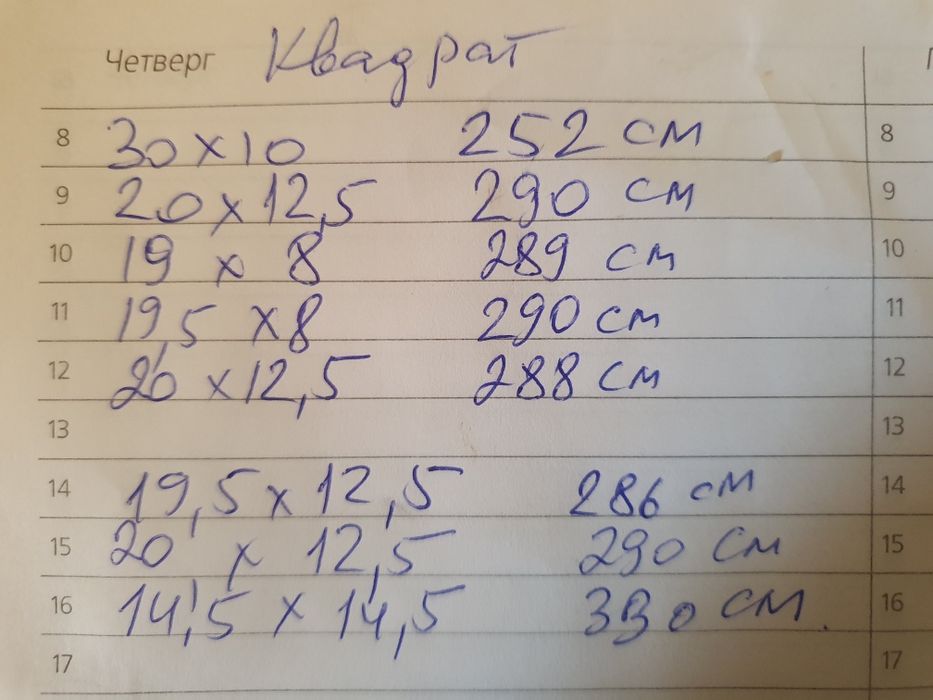 Четверг Квадрат
8 30 x 10 252 см 8
9 20 x 12,5 290 см 9
10 19 x 8 289 см 10
11 19,5 x 8 290 см 11
12 20 x 12,5 288 см 12
13 13
14 19,5 x 12,5 286 см 14
15 20 x 12,5 290 см 15
16 14,5 x 14,5 330 см. 16
17 17